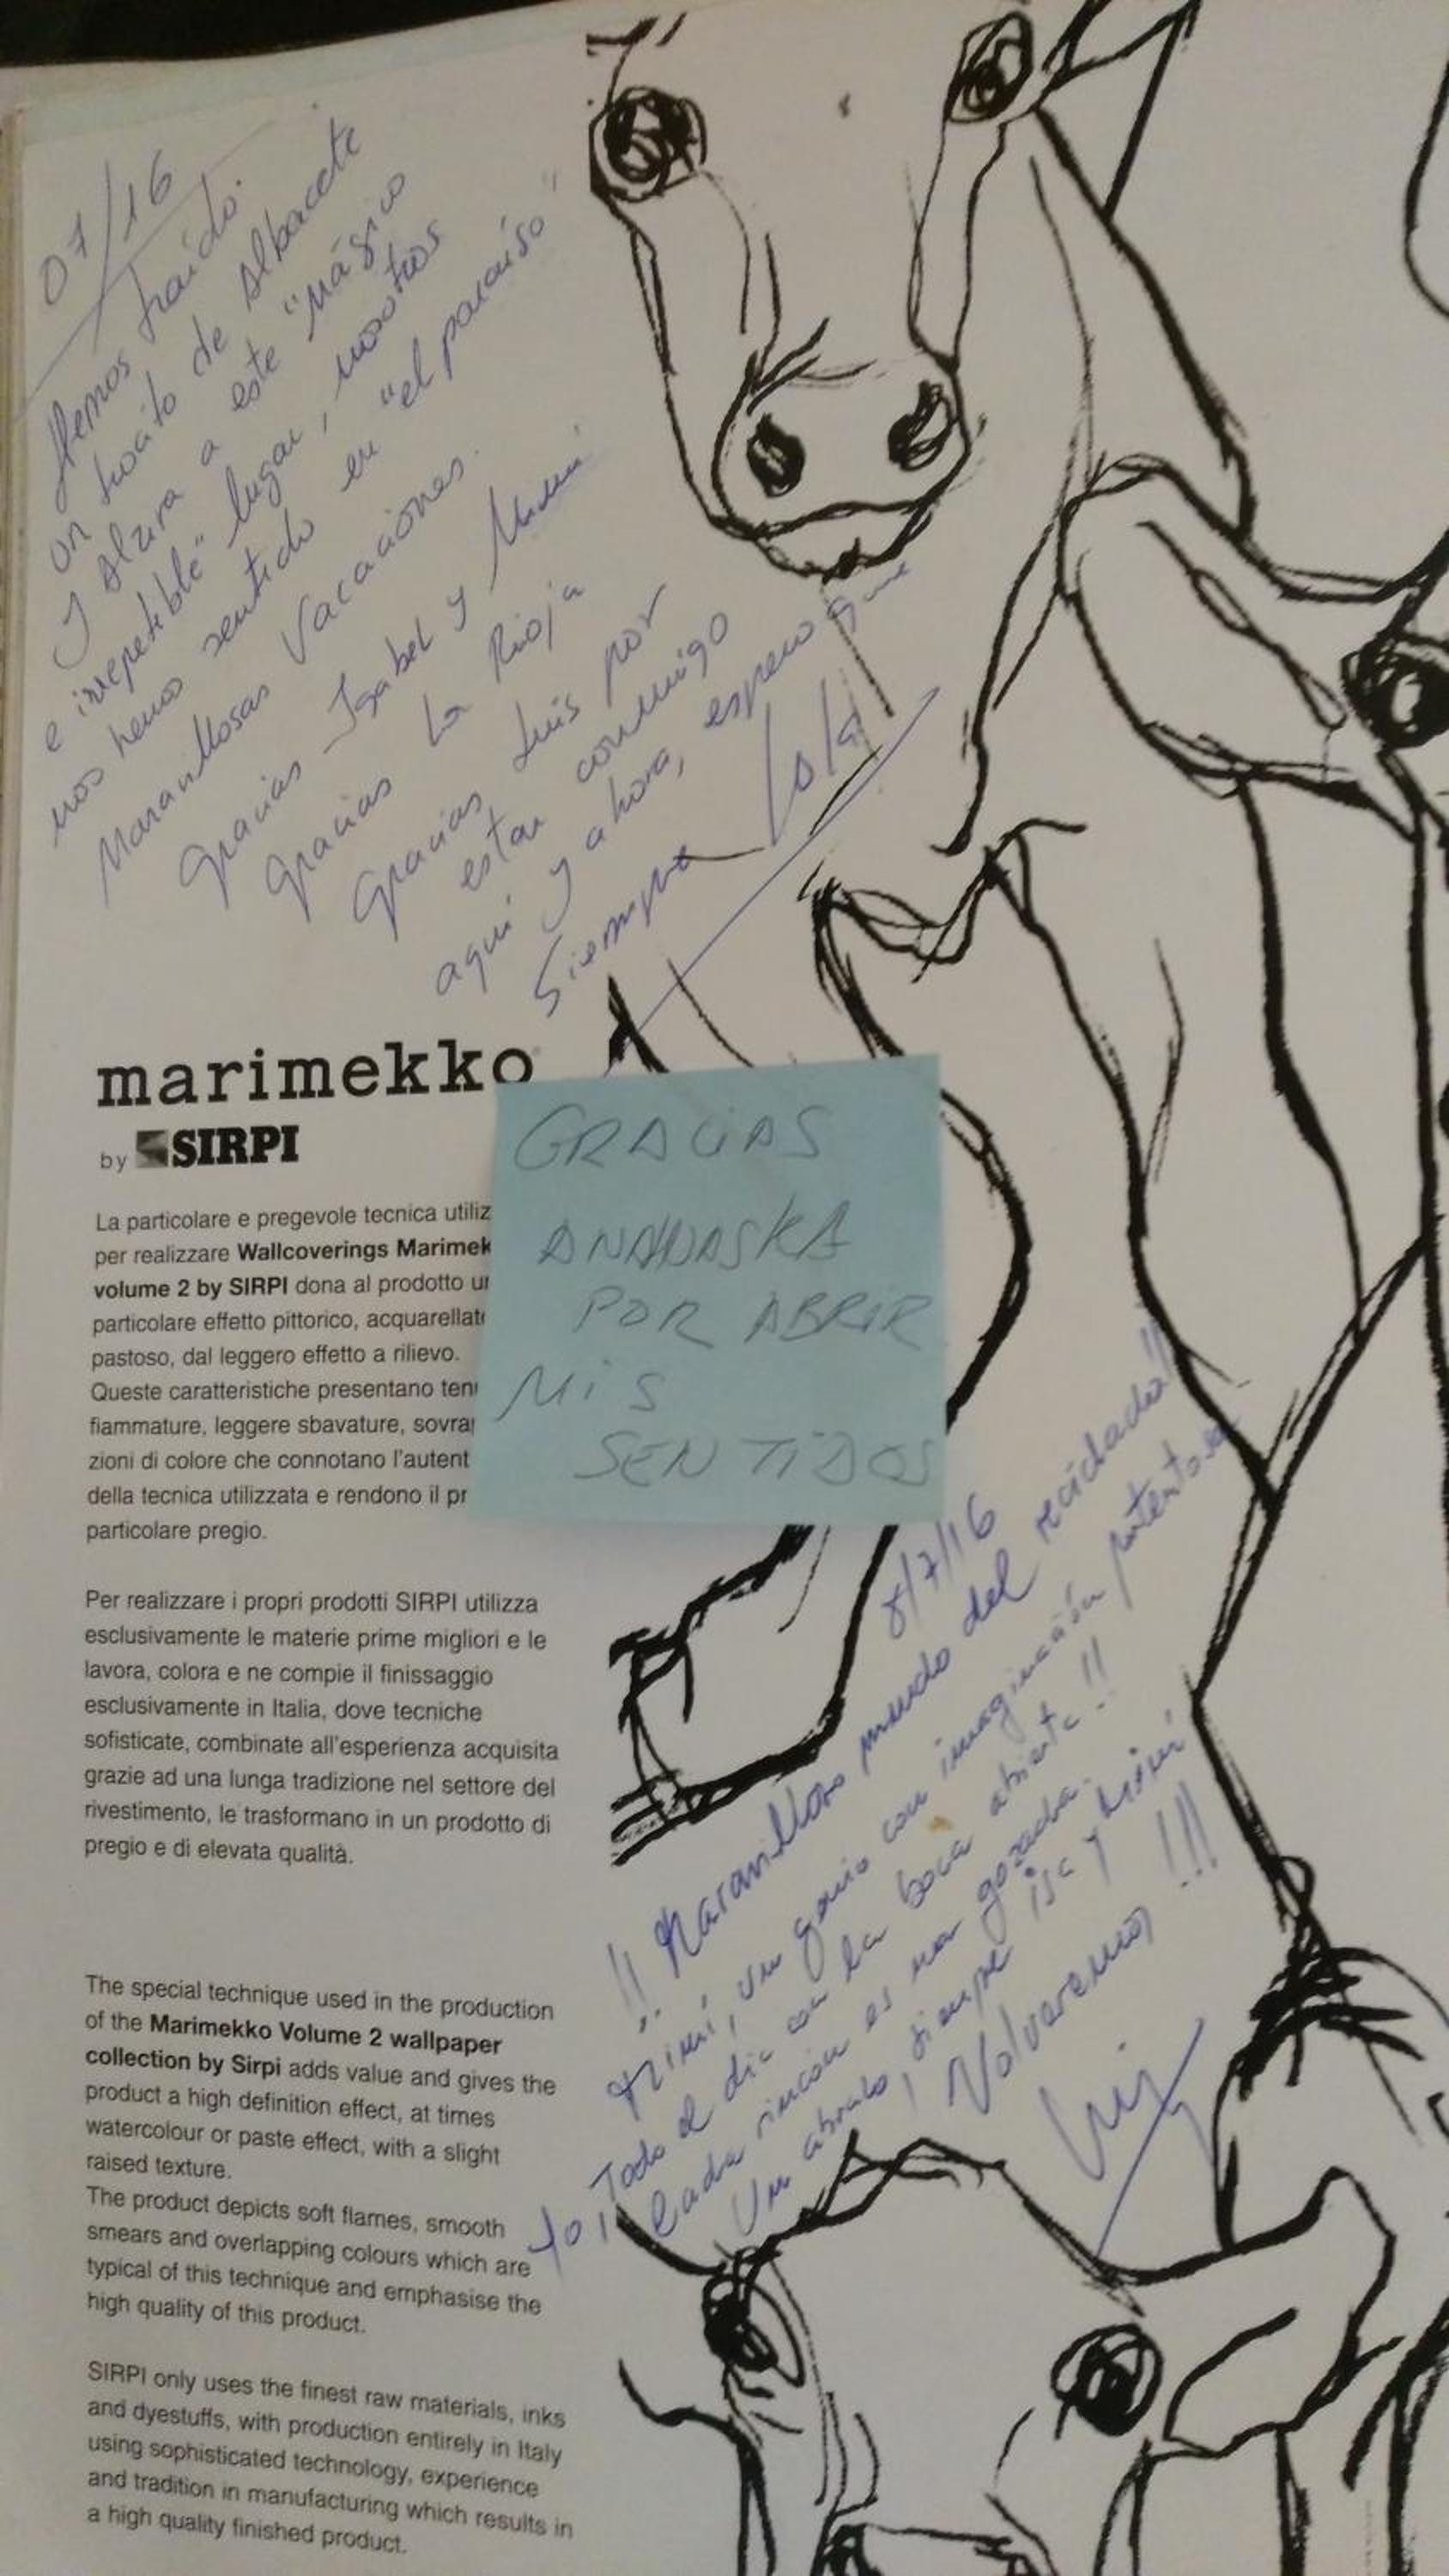 07/16
Hemos traído
un trocito de Albacete
y Alzira a este "mágico
e irrepetible" lugar, nosotros
nos hemos sentido en "el paraíso"
Maravillosas Vacaciones.
Gracias Isabel y Mimi
Gracias La Rioja
Gracias Luis por
estar conmigo
aquí y ahora, espero que
siempre Lola
marimekko
by SIRPI
La particolare e pregevole tecnica utiliz
per realizzare Wallcoverings Marimek
volume 2 by SIRPI dona al prodotto un
particolare effetto pittorico, acquarellato
pastoso, dal leggero effetto a rilievo.
Queste caratteristiche presentano ten
fiammature, leggere sbavature, sovra
zioni di colore che connotano l'autent
della tecnica utilizzata e rendono il pr
particolare pregio.
Per realizzare i propri prodotti SIRPI utilizza
esclusivamente le materie prime migliori e le
lavora, colora e ne compie il finissaggio
esclusivamente in Italia, dove tecniche
sofisticate, combinate all'esperienza acquisita
grazie ad una lunga tradizione nel settore del
rivestimento, le trasformano in un prodotto di
pregio e di elevata qualità.
The special technique used in the production
of the Marimekko Volume 2 wallpaper
collection by Sirpi adds value and gives the
product a high definition effect, at times
watercolour or paste effect, with a slight
raised texture.
The product depicts soft flames, smooth
smears and overlapping colours which are
typical of this technique and emphasise the
high quality of this product.
SIRPI only uses the finest raw materials, inks
and dyestuffs, with production entirely in Italy
using sophisticated technology, experience
and tradition in manufacturing which results in
a high quality finished product.
GRACIAS
POR ABRIR
MIS
SENTIDOS
8/7/16
!! Maravilloso mundo del reciclado!!
Mimi, un genio con imaginación portentosa
Todo el día con la boca abierta!!
Cada rincón es una gozada.
Un abrazo, siempre Isa y Mimi
Volveremos !!!
Luis